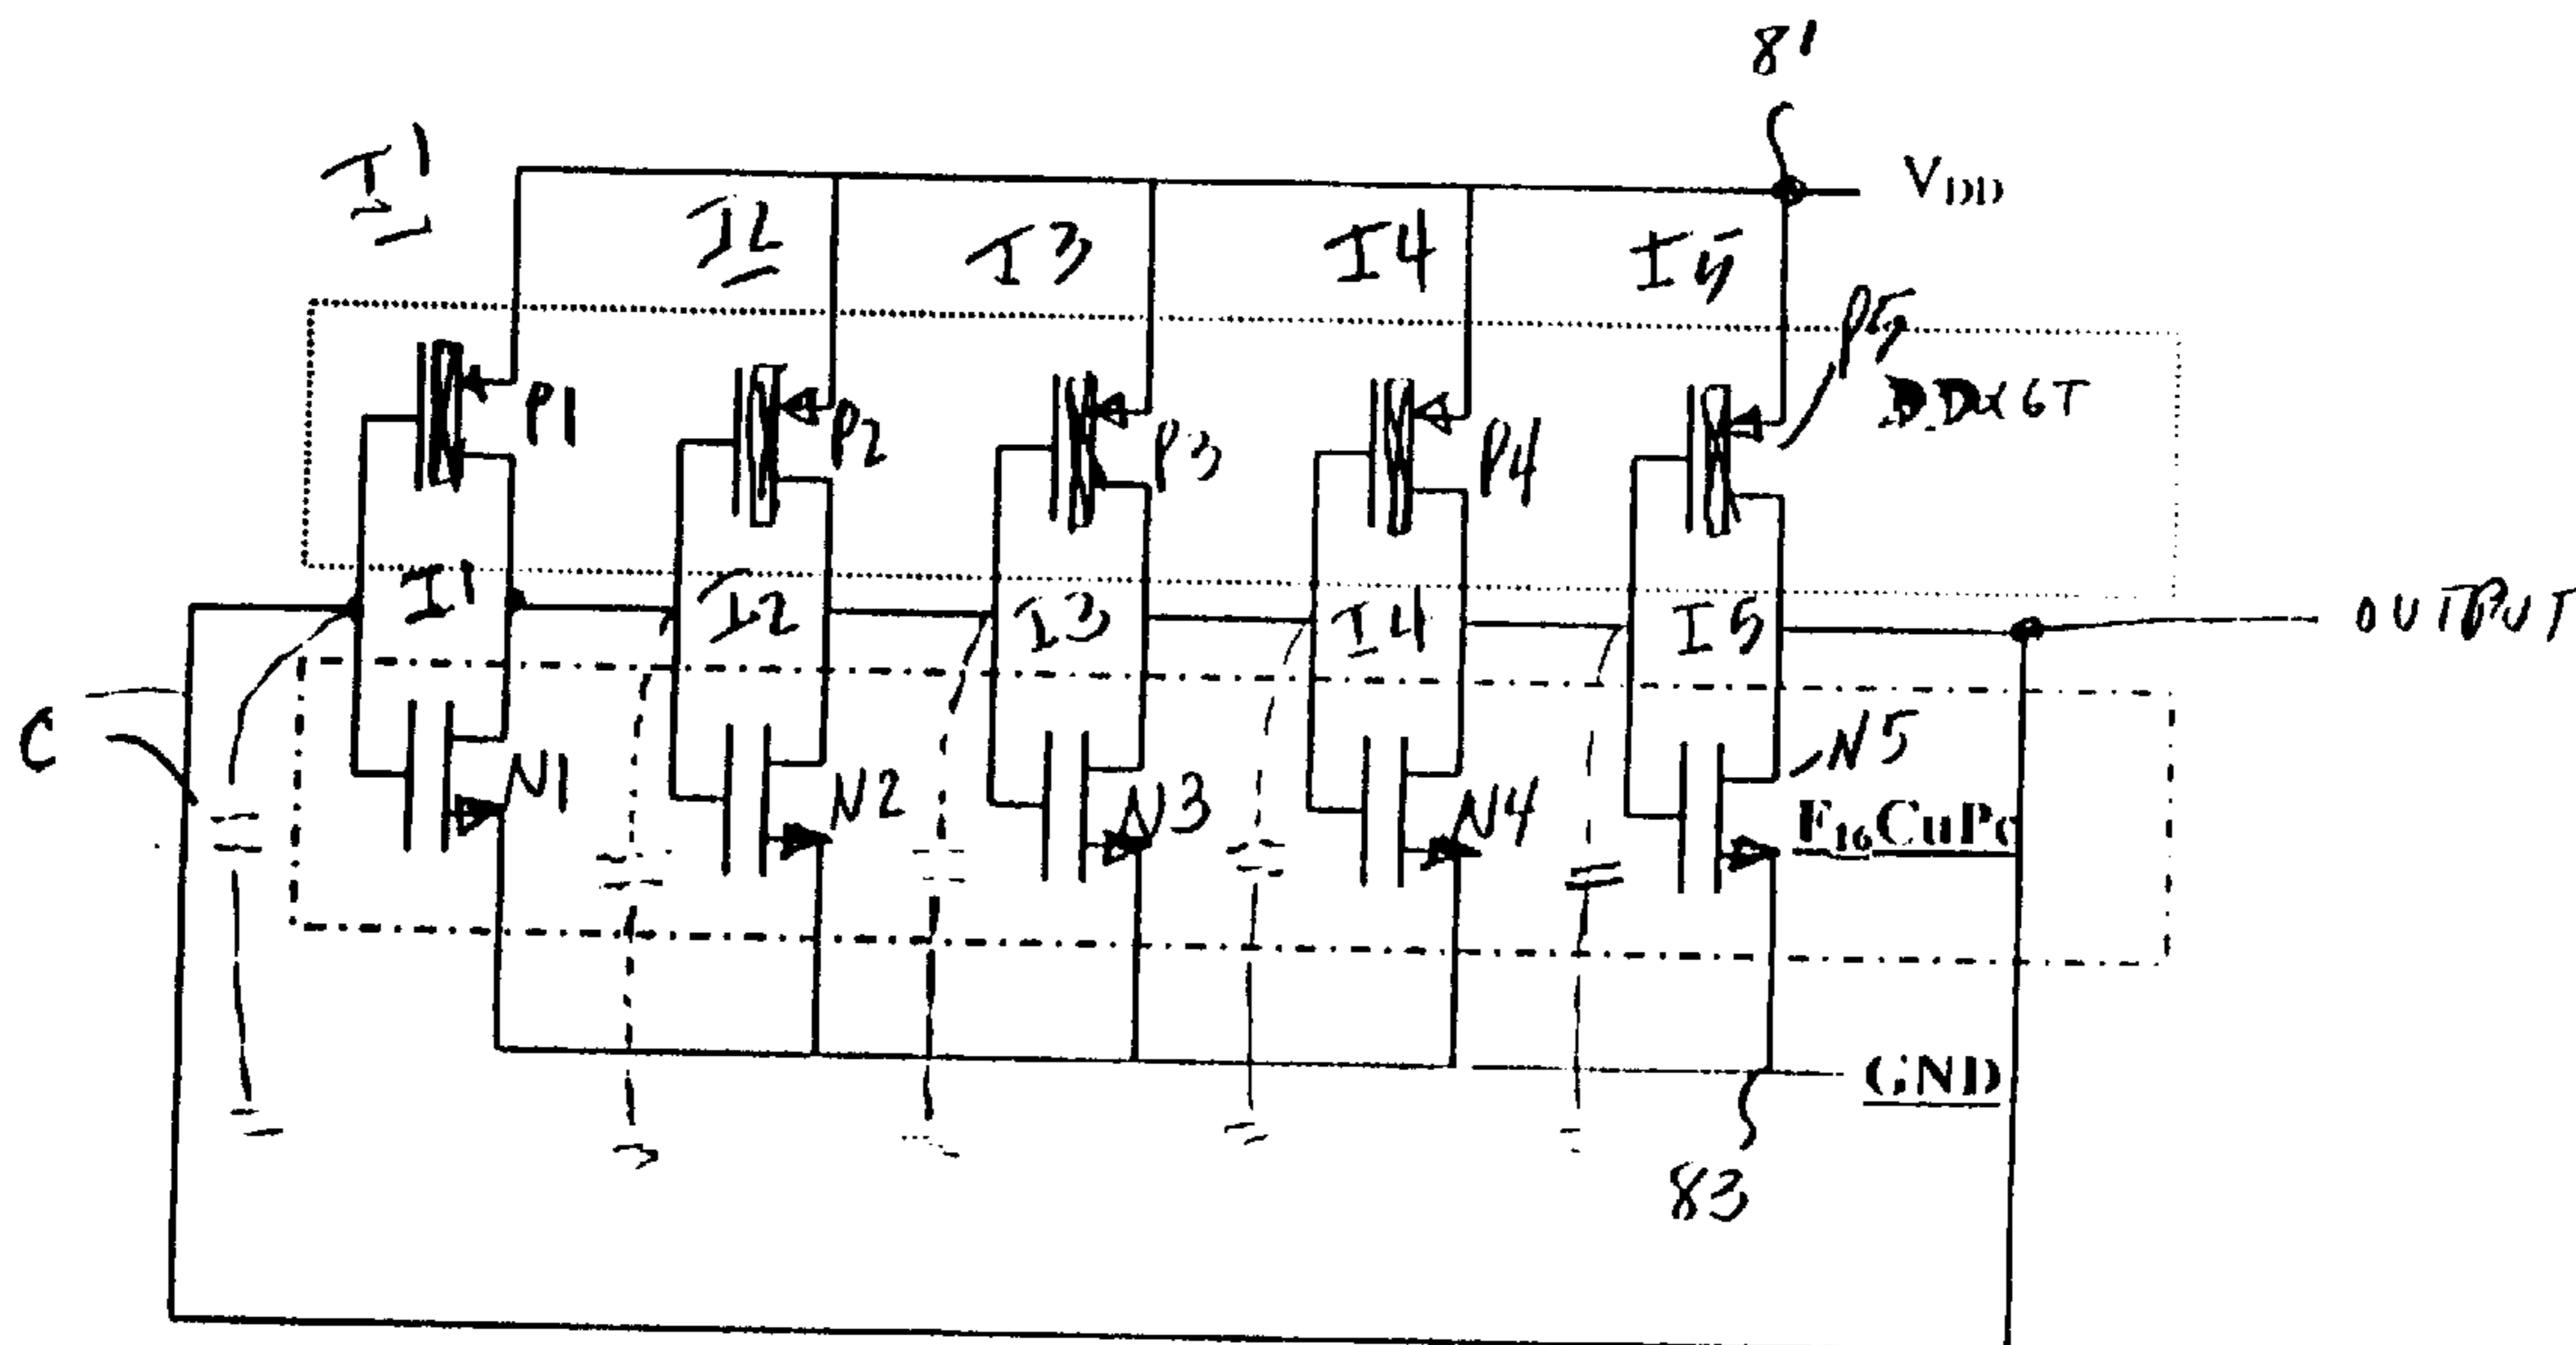 81
V_DD
I1
I2
I3
I4
I5
P5
DDα6T
P1
P2
P3
P4
I1
I2
I3
I4
I5
OUTPUT
C
N1
N2
N3
N4
N5
F₁₆CuPc
GND
83